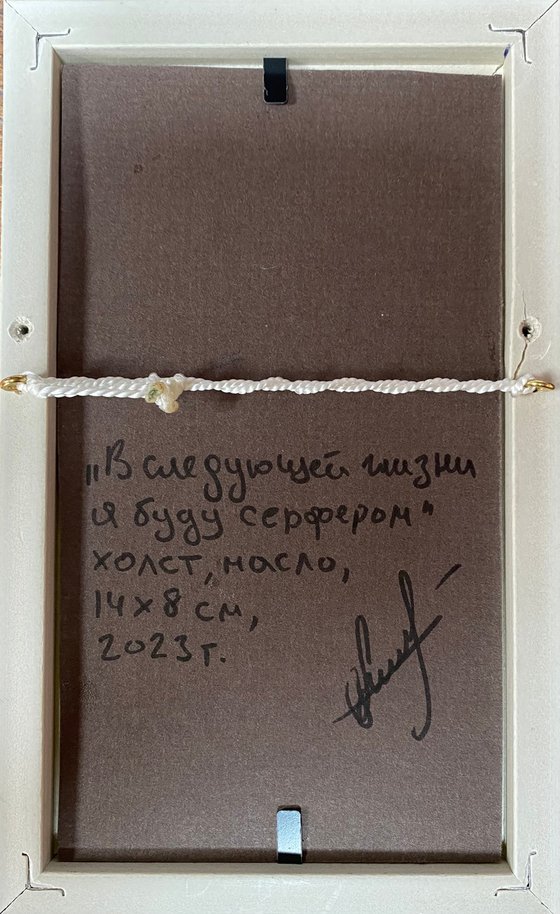 „В следующей жизни
я буду серфером"
холст, масло,
14х8 см,
2023 г.